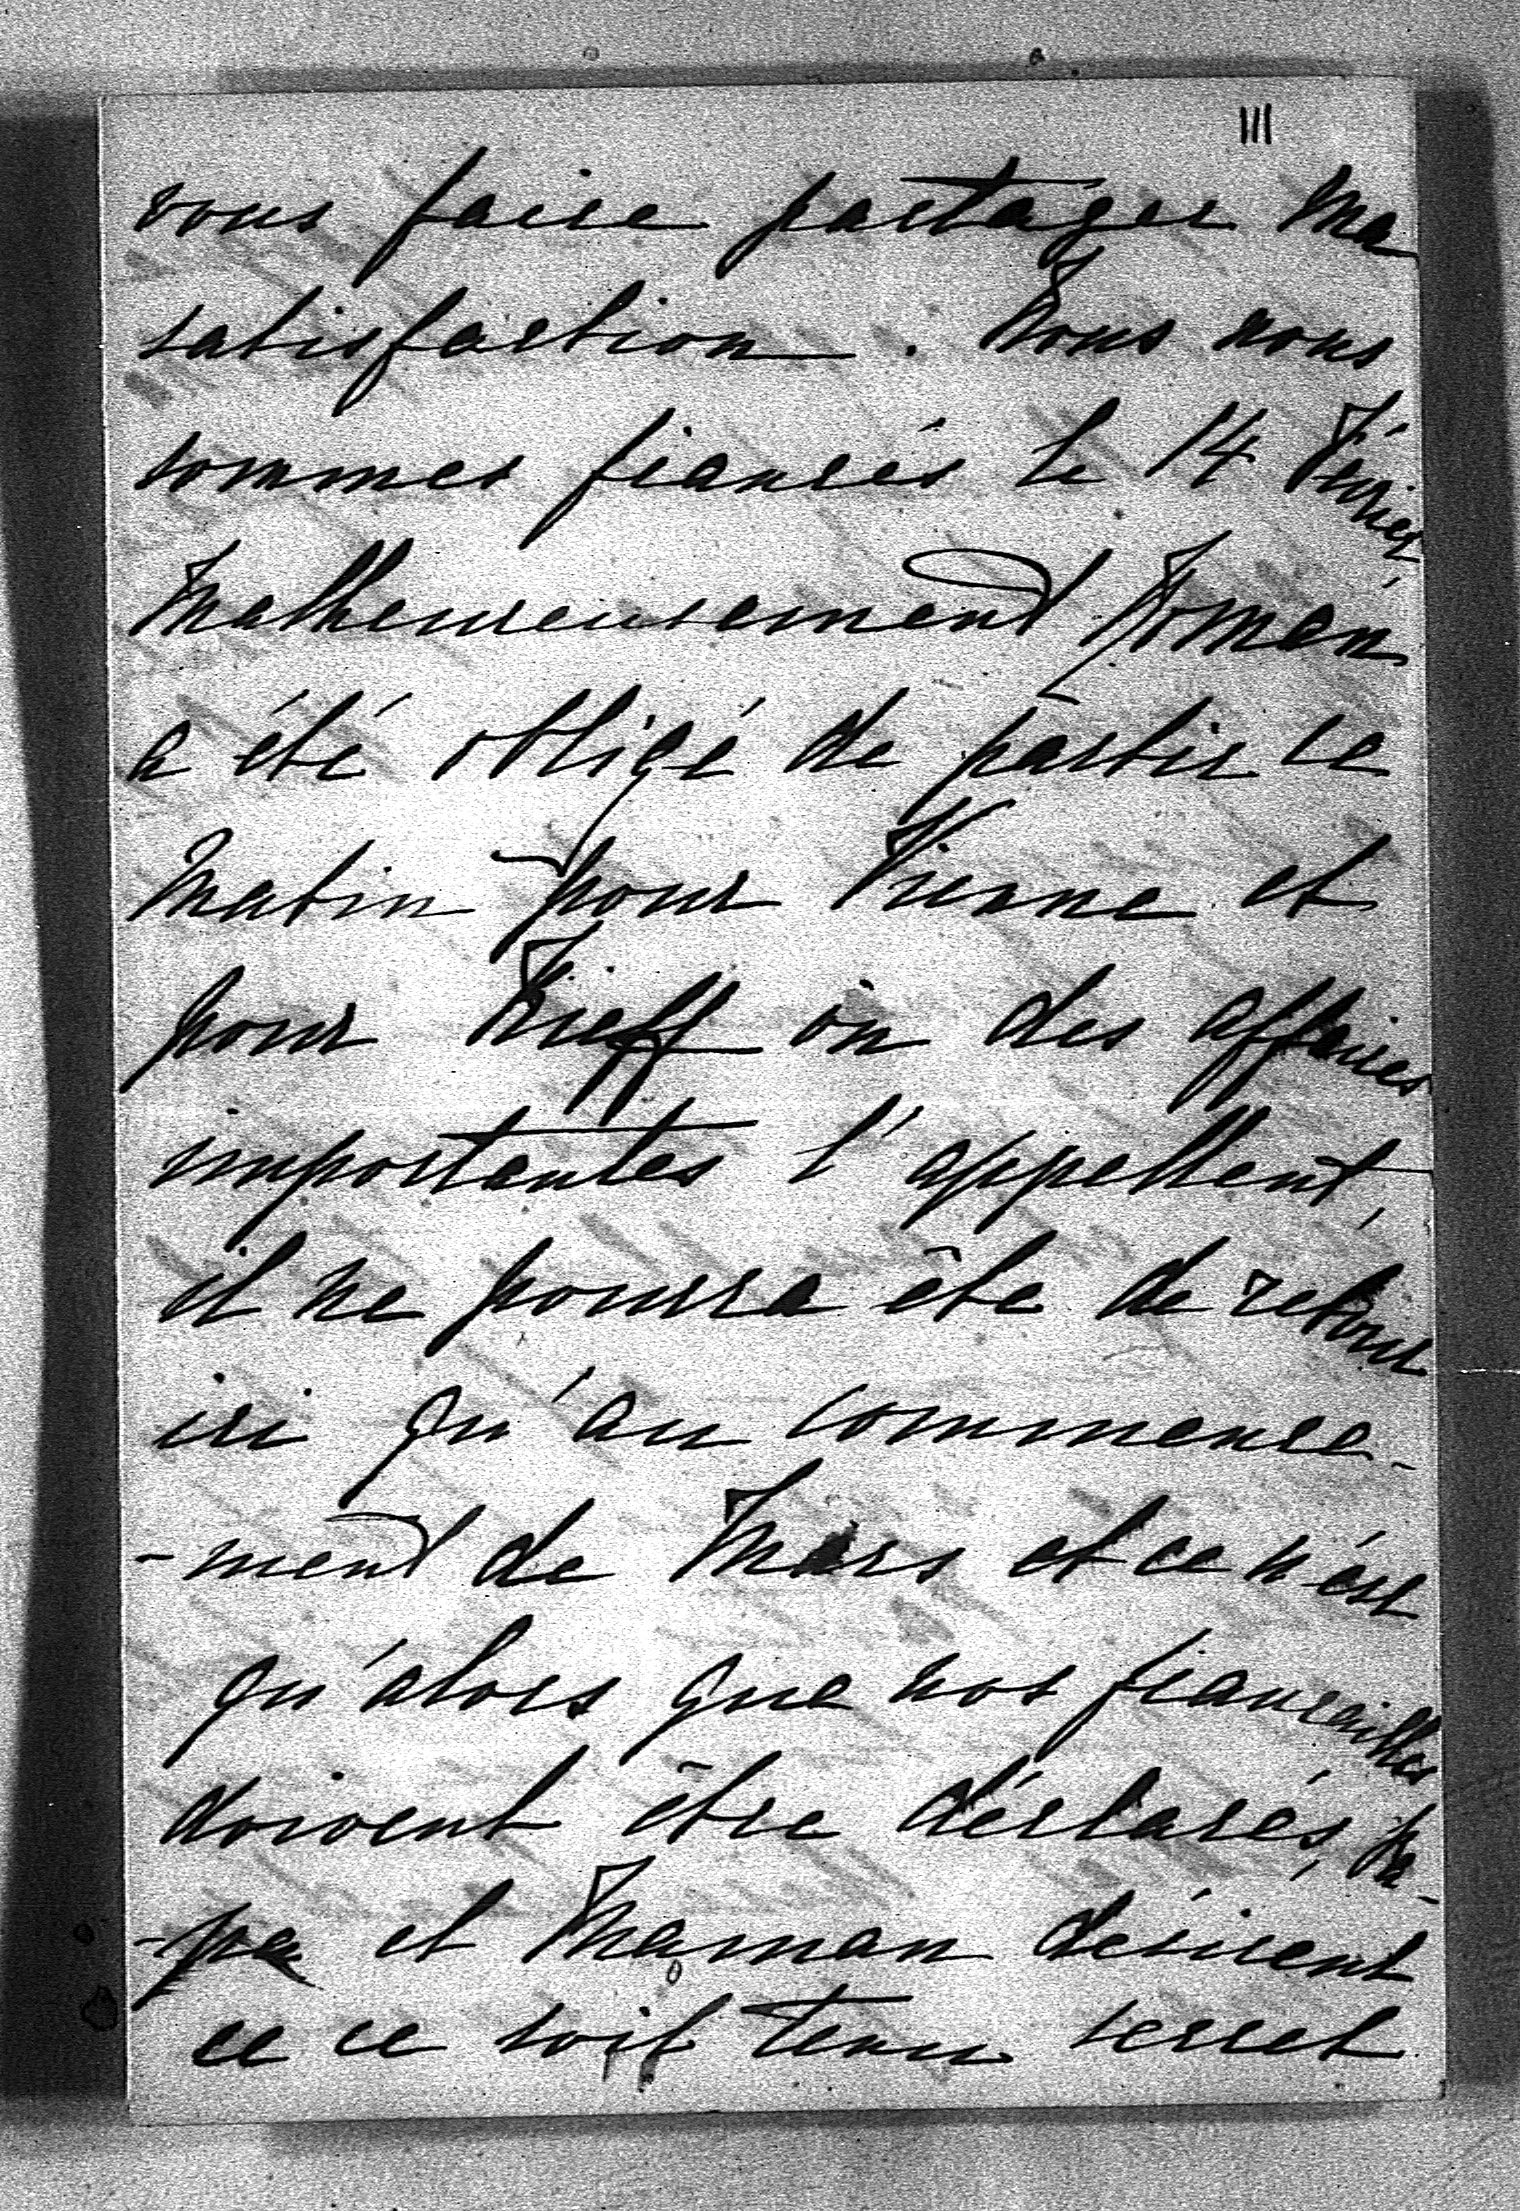 III
vous faire partager ma
satisfaction. Nous nous
sommes fiancés le 14 Février,
Malheureusement Roman
a été obligé de partir ce
matin pour Vienne et
pour Kieff où des affaires
importantes l'appellent,
il ne pourra être de retour
ici qu'au commence-
-ment de Mars et ce n'est
qu'alors que nos fiançailles
doivent être déclarés, Pa-
-pa et Maman désirent
ce ce soit tenu secret